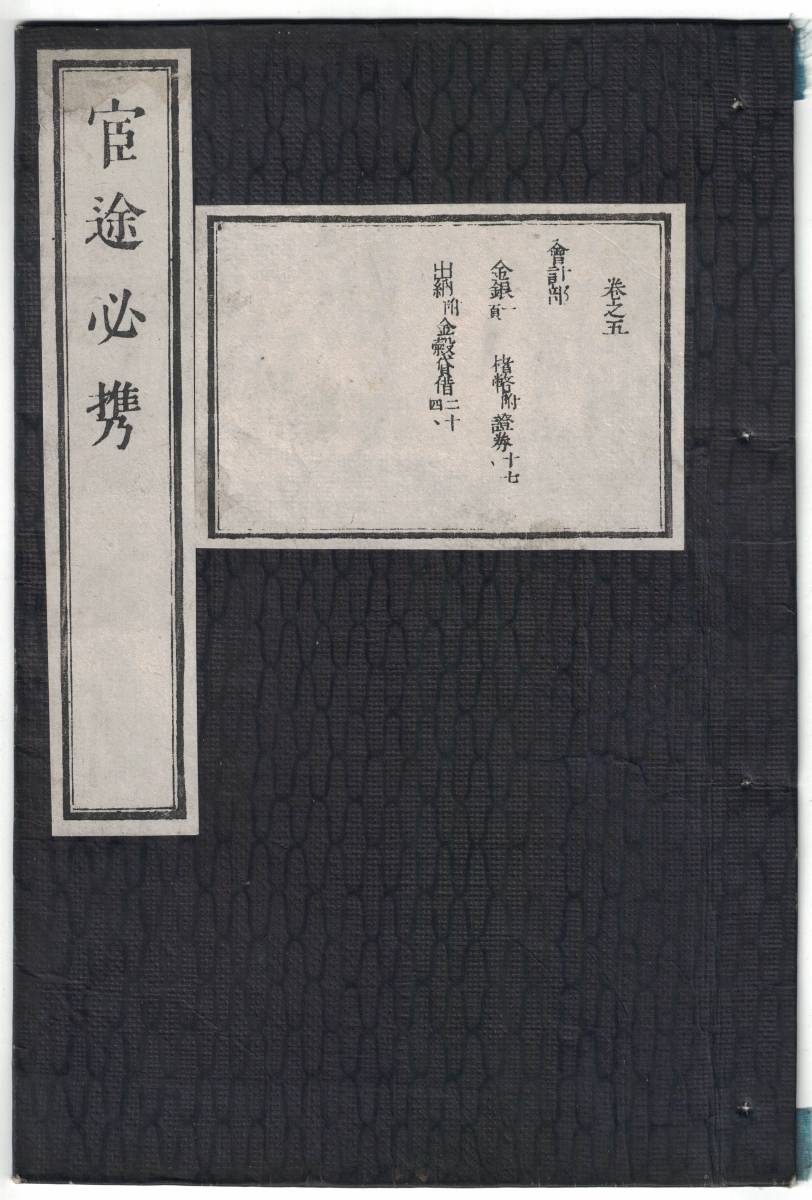 宦途必携
卷之五
會計部
金銀一頁 楮幣附證券十七、
出納附金穀貸借二十四、